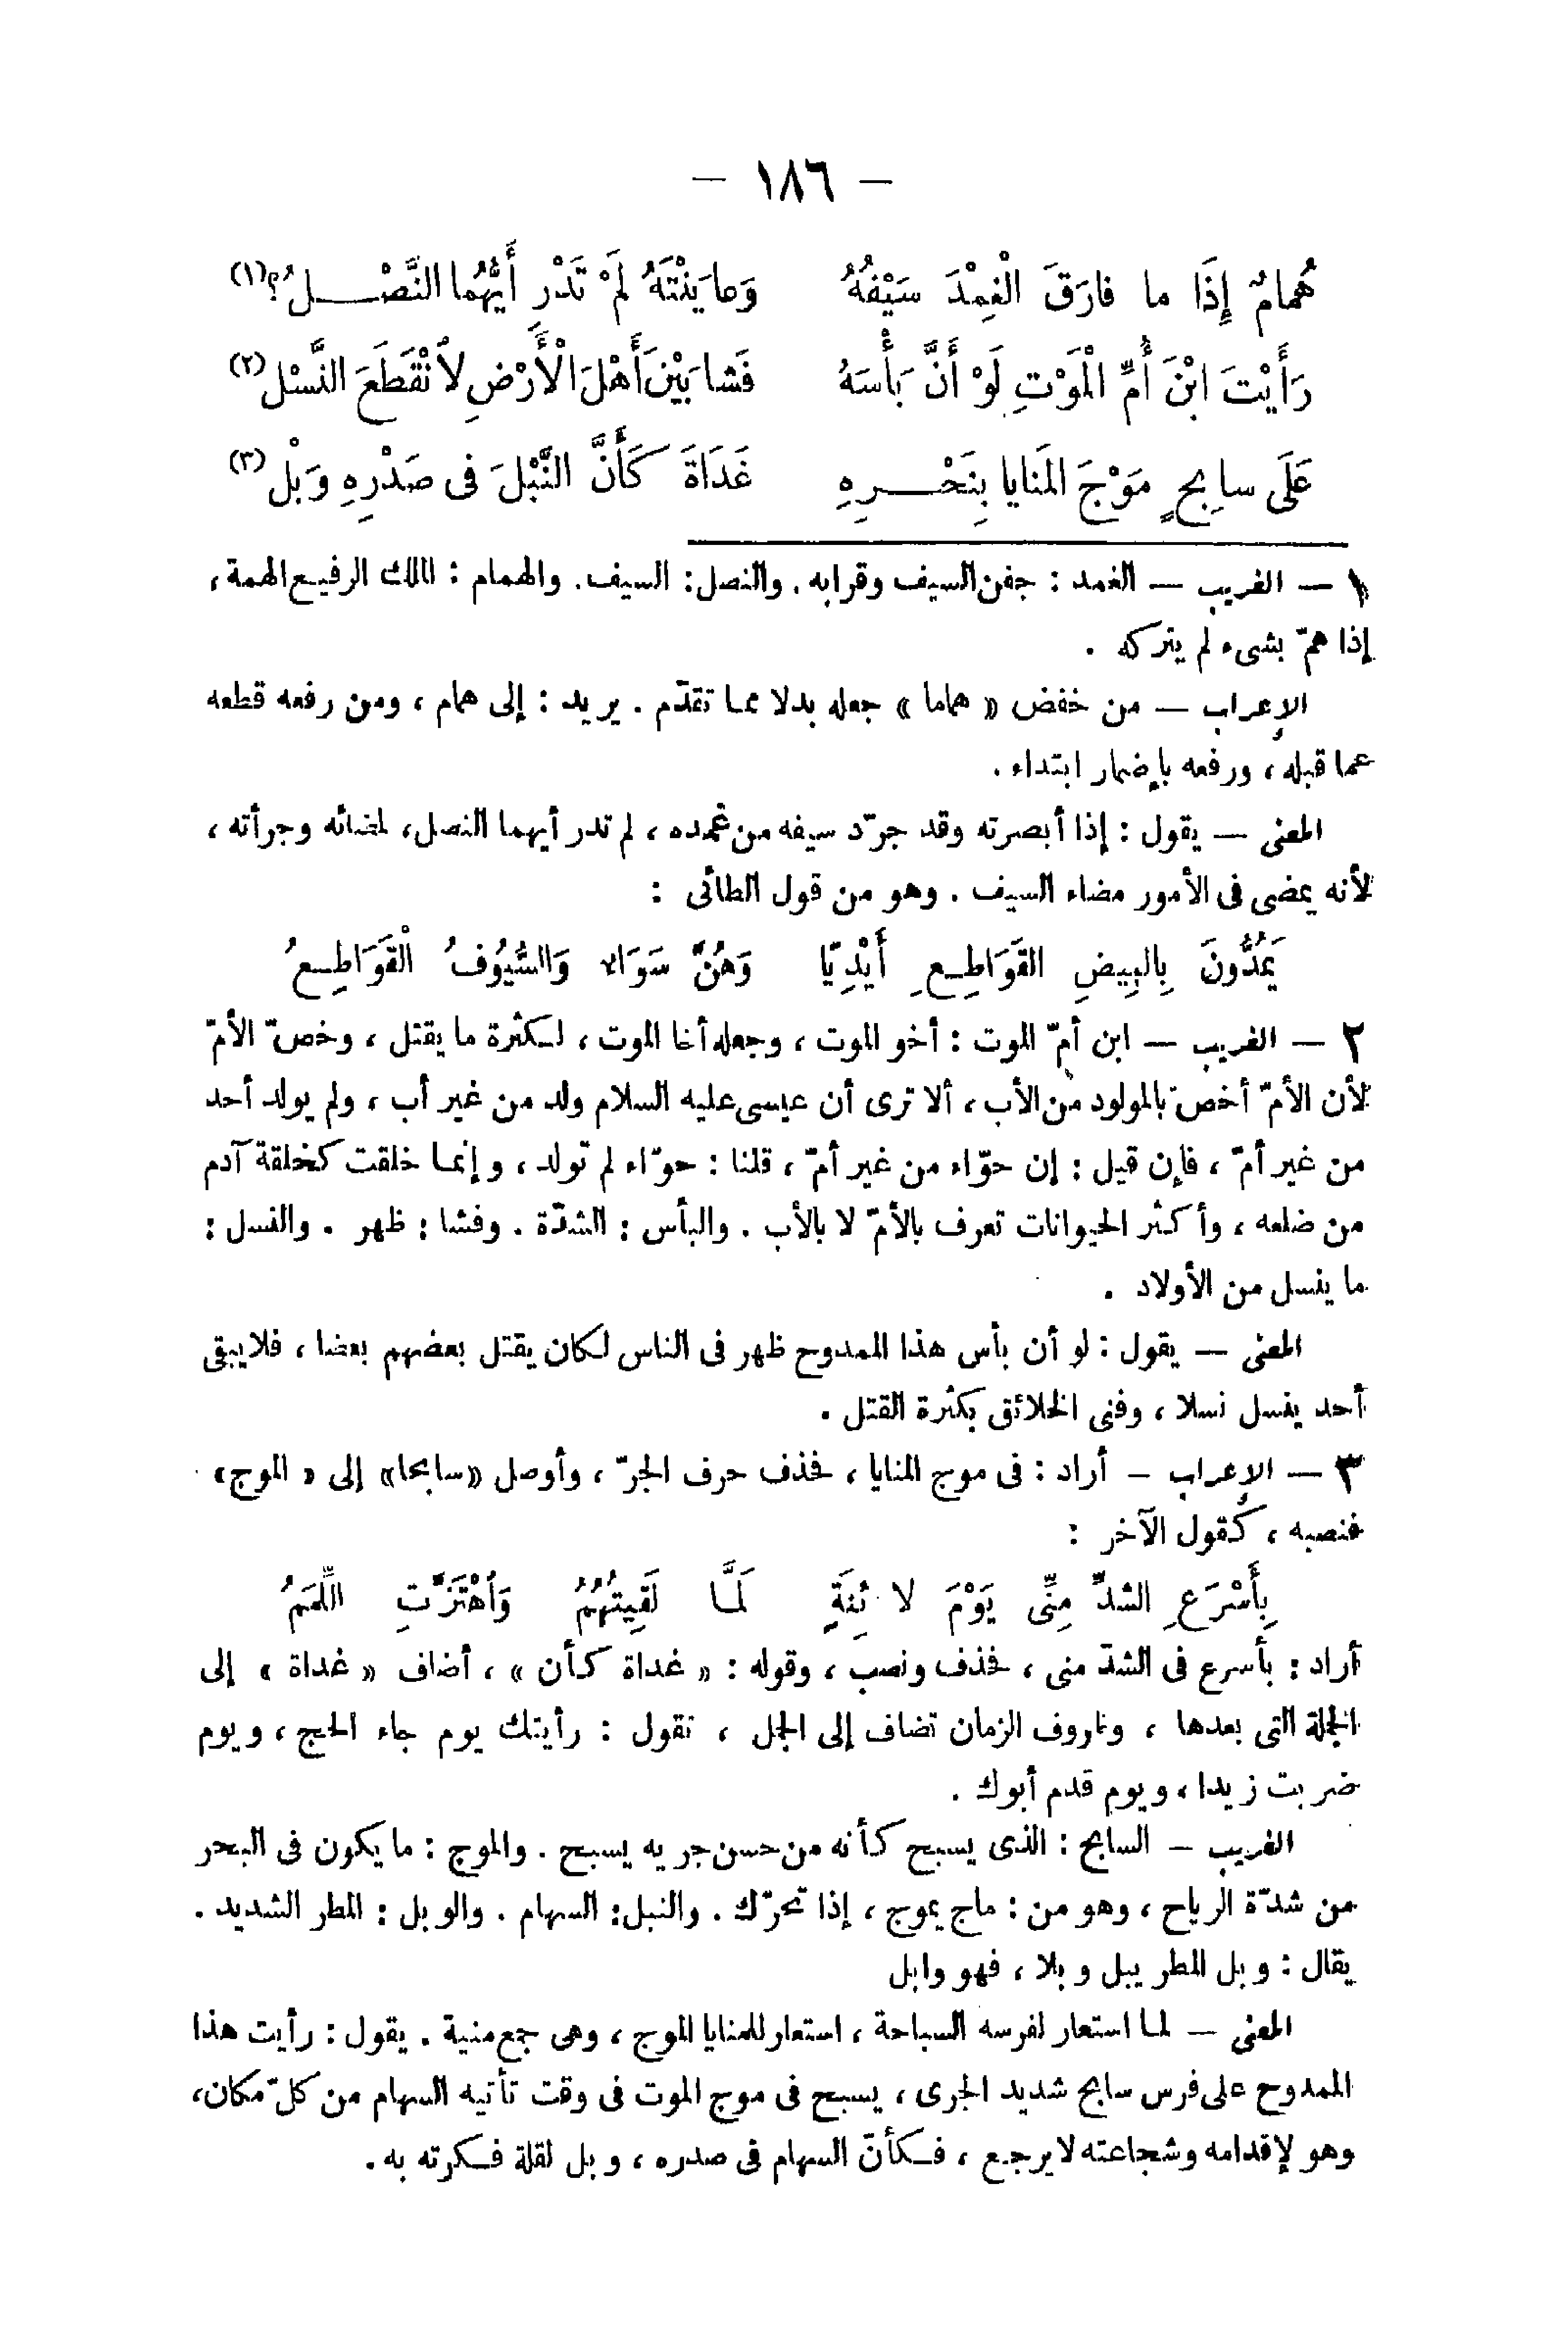 — ١٨٦ —
هُمامٌ إِذَا ما فارَقَ الْغِمْدَ سَيْفُهُ وَعايَنْتَهُ لَمْ تَدْرِ أَيُّهُما النَّصْلُ؟(١)
رَأَيْتَ ابْنَ أُمِّ الْمَوْتِ لَوْ أَنَّ بَأْسَهُ فَشا بَيْنَ أَهْلَ الْأَرْضِ لاَنْقَطَعَ النَّسْل(٢)
عَلَى سابِحٍ مَوْجَ المَنايا بِنَحْرِهِ غَدَاةَ كَأَنَّ النَّبْلَ فى صَدْرِهِ وَبْل(٣)
١ — الغريب — الغمد : جفن السيف وقرابه . والنصل : السيف . والهمام : الملك الرفيع الهمة ،
إذا همّ بشىء لم يتركه .
الإعراب — من خفض « هماما » جعله بدلا مما تقدّم . يريد : إلى همام ، ومن رفعه قطعه
عما قبله ، ورفعه بإضمار ابتداء .
المعنى — يقول : إذا أبصرته وقد جرّد سيفه من غمده ، لم تدر أيهما النصل ، لمضائه وجرأته ،
لأنه يمضى فى الأمور مضاء السيف . وهو من قول الطائى :
يَمُدُّونَ بِالبِيضِ القَوَاطِعِ أَيْدِيًا وَهُنَّ سَوَاء وَالسُّيُوفُ الْقَوَاطِعُ
٢ — الغريب — ابن أمّ الموت : أخو الموت ، وجعله أخا الموت ، لكثرة ما يقتل ، وخصّ الأمّ
لأن الأمّ أخصّ بالمولود من الأب ، ألا ترى أن عيسى عليه السلام ولد من غير أب ، ولم يولد أحد
من غير أمّ ، فإن قيل : إن حوّاء من غير أمّ ، قلنا : حوّاء لم تولد ، وإنما خلقت كخلقة آدم
من ضلعه ، وأكثر الحيوانات تعرف بالأمّ لا بالأب . والبأس : الشدّة . وفشا : ظهر . والنسل :
ما ينسل من الأولاد .
المعنى — يقول : لو أن بأس هذا الممدوح ظهر فى الناس لكان يقتل بعضهم بعضا ، فلا يبقى
أحد ينسل نسلا ، وفنى الخلائق بكثرة القتل .
٣ — الإعراب — أراد : فى موج المنايا ، فحذف حرف الجرّ ، وأوصل «سابحا» إلى « الموج»
فنصبه ، كقول الآخر :
بِأَسْرَعِ الشدِّ مِنِّى يَوْمَ لا نِيَةٍ لَمَّا لَقِيتُهُمُ وَاهْتَزَّتِ اللِّمَمُ
أراد : بأسرع فى الشدّ منى ، فحذف ونصب ، وقوله : « غداة كأن » ، أضاف « غداة » إلى
الجملة التى بعدها ، وظروف الزمان تضاف إلى الجمل ، تقول : رأيتك يوم جاء الحج ، ويوم
ضربت زيدا ، ويوم قدم أبوك .
الغريب — السابح : الذى يسبح كأنه من حسن جريه يسبح . والموج : ما يكون فى البحر
من شدّة الرياح ، وهو من : ماج يموج ، إذا تحرّك . والنبل : السهام . والوبل : المطر الشديد .
يقال : وبل المطر يبل وبلا ، فهو وابل
المعنى — لما استعار لفرسه السباحة ، استعار للمنايا الموج ، وهى جمع منية . يقول : رأيت هذا
الممدوح على فرس سابح شديد الجرى ، يسبح فى موج الموت فى وقت تأتيه السهام من كلّ مكان ،
وهو لإقدامه وشجاعته لا يرجع ، فكأنّ السهام فى صدره ، وبل لقلة فكرته به .